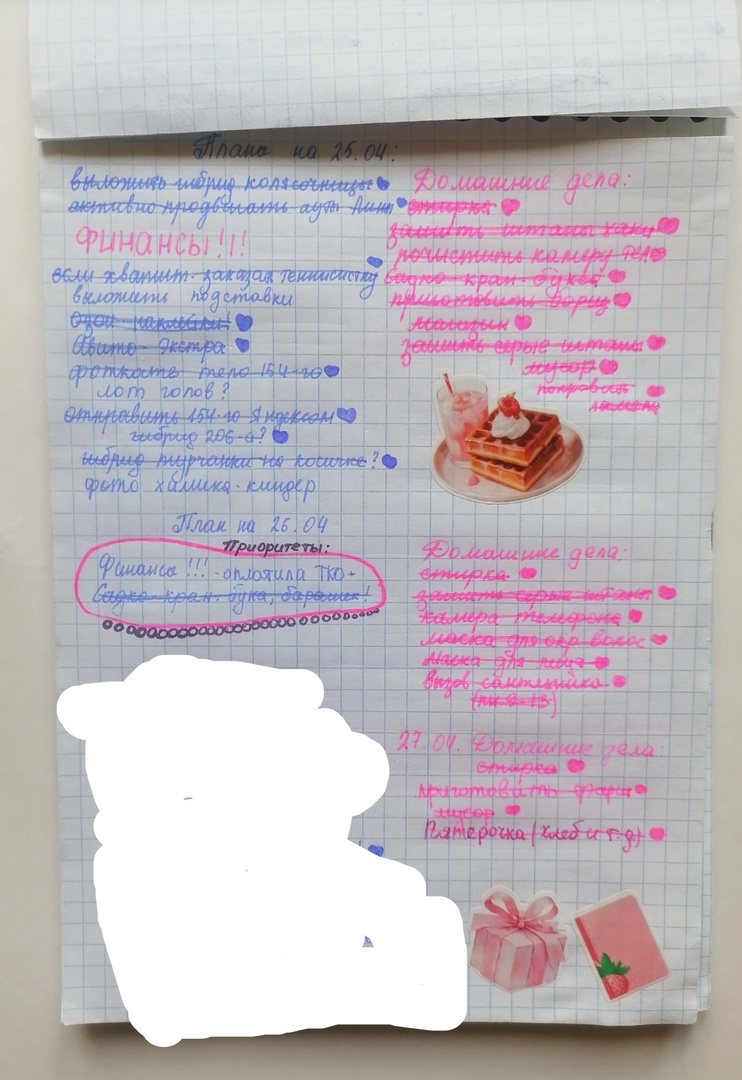 Планы на 25.04:
выложить гибрид колясочницы
активно продвигать ауты Лин
ФИНАНСЫ!!!
если хватит- заказая теннисистку
выложить подставки
Озон наклейки!
Авито- Экстра
фоткать тело 154-го
лот голов?
отправить 154-го Яндексом
гибрид 206-й?
гибрид турчанки на косичке?
фото халика- киндер
Домашние дела:
стирка
зашить штаны хаки
почистить камеру тел
Садко- кран- букса
приготовить борщ
магазин
зашить серые штаны
мусор
поправить
План на 26.04
Приоритеты:
Финансы!!! -оплатила ТКО+
Садко- кран- бука, барашек!
Домашние дела:
стирка
зашить серые штаны
камера телефона
маска для окр волос
маска для лица
вызов сантехника
(пн 9-13)
27.04. Домашние дела:
стирка
приготовить фарш
мусор
Пятерочка (хлеб и т.д)